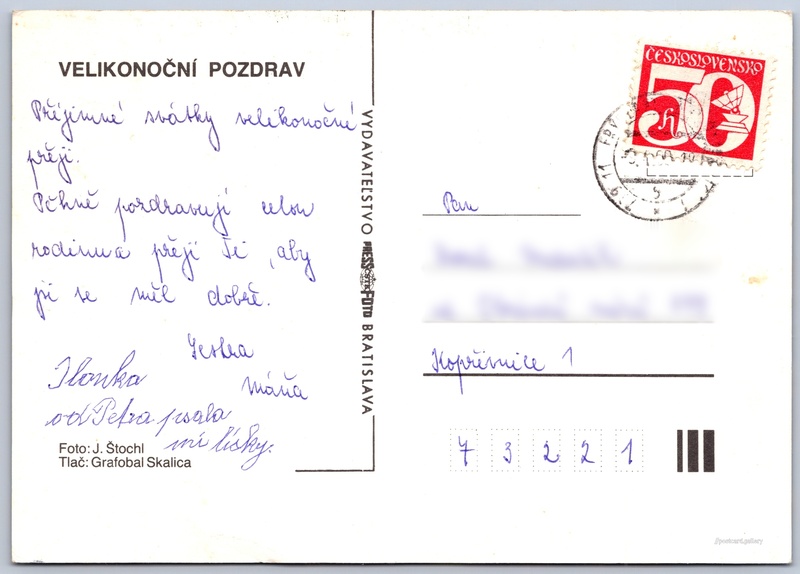 VELIKONOČNÍ POZDRAV
Příjemné svátky velikonoční
přeji.
Pěkně pozdravují celou
rodinu a přejí Ti, aby
jsi se měl dobře.
Sestra
Máňa
Ilonka
od Petra psala
mi lísky.
Foto: J. Štochl
Tlač: Grafobal Skalica
VYDAVATEĽSTVO PRESSFOTO BRATISLAVA
ČESKOSLOVENSKO
50 h
Pan
Kopřivnice 1
73221
postcard.gallery